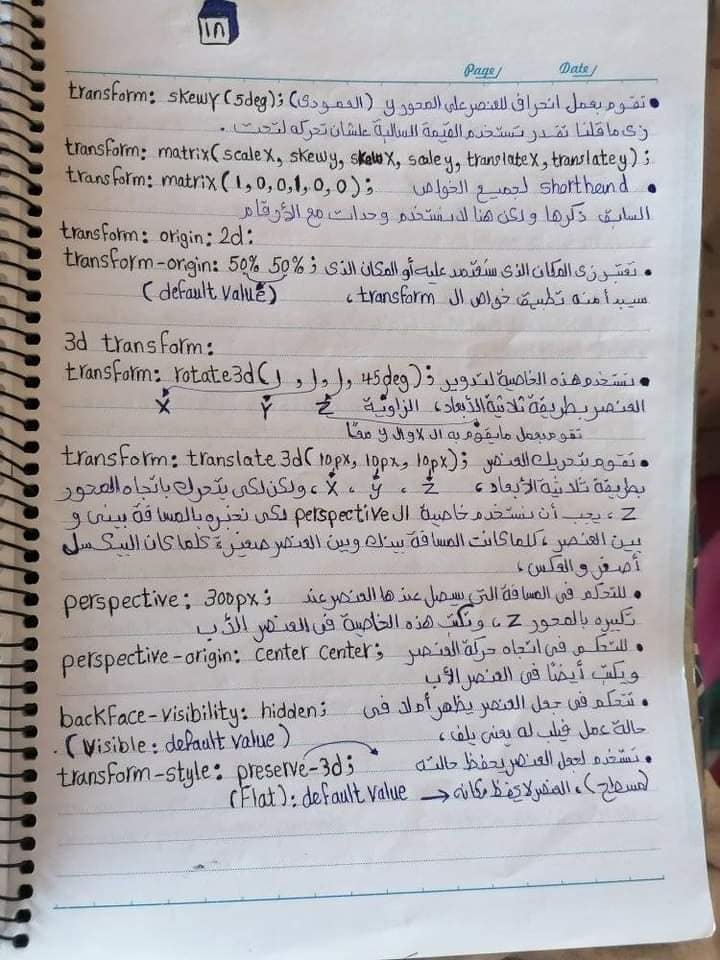 in
Page/ Date/
transform: skewY(5deg); • تقوم بعمل انحراف للعنصر على المحور y (العمودى)
زى ما قلنا تقدر تستخدم القيمة السالبة علشان تحركه لتحت.
transform: matrix(scaleX, skewy, skewX, scaley, translateX, translatey);
transform: matrix(1,0,0,1,0,0); • shorthand لجميع الخواص
السابق ذكرها ولكن هنا لا يستخدم وحدات مع الأرقام
transform: origin: 2d:
transform-origin: 50% 50%; • تعتبر زى المكان الذى ستعتمد عليه أو المكان الذى
(default value) سيبدأ منه تطبيق خواص ال transform،
3d transform:
transform: rotate3d(1,1,1,45deg); • نستخدم هذه الخاصية لتدوير
X Y Z العنصر بطريقة ثلاثية الأبعاد، الزاوية
تقوم بعمل ما يقوم به ال x وال y معًا
transform: translate 3d(10px, 10px, 10px); • تقوم بتحريك العنصر
بطريقة ثلاثية الأبعاد، X، Y، Z، ولكن لكى يتحرك باتجاه المحور
Z، يجب أن نستخدم خاصية ال perspective لكى نخبره بالمسافة بينى و
بين العنصر، كلما كانت المسافة بينك وبين العنصر صغيرة كلما كان البيكسل
أصغر والعكس،
perspective: 300px; • للتحكم فى المسافة التى يصل عندها العنصر عند
تكبيره بالمحور Z، وتكتب هذه الخاصية فى العنصر الأب
perspective-origin: center center; • للتحكم فى اتجاه حركة العنصر
ويكتب أيضًا فى العنصر الأب
backface-visibility: hidden; • تتحكم فى جعل العنصر يظهر أم لا فى
(visible: default value) حالة عمل فيلب له يعنى يلف،
transform-style: preserve-3d; • نستخدم لجعل العنصر يحفظ حالته
(Flat): default value ← (مسطح)، العنصر لا يحفظ مكانه